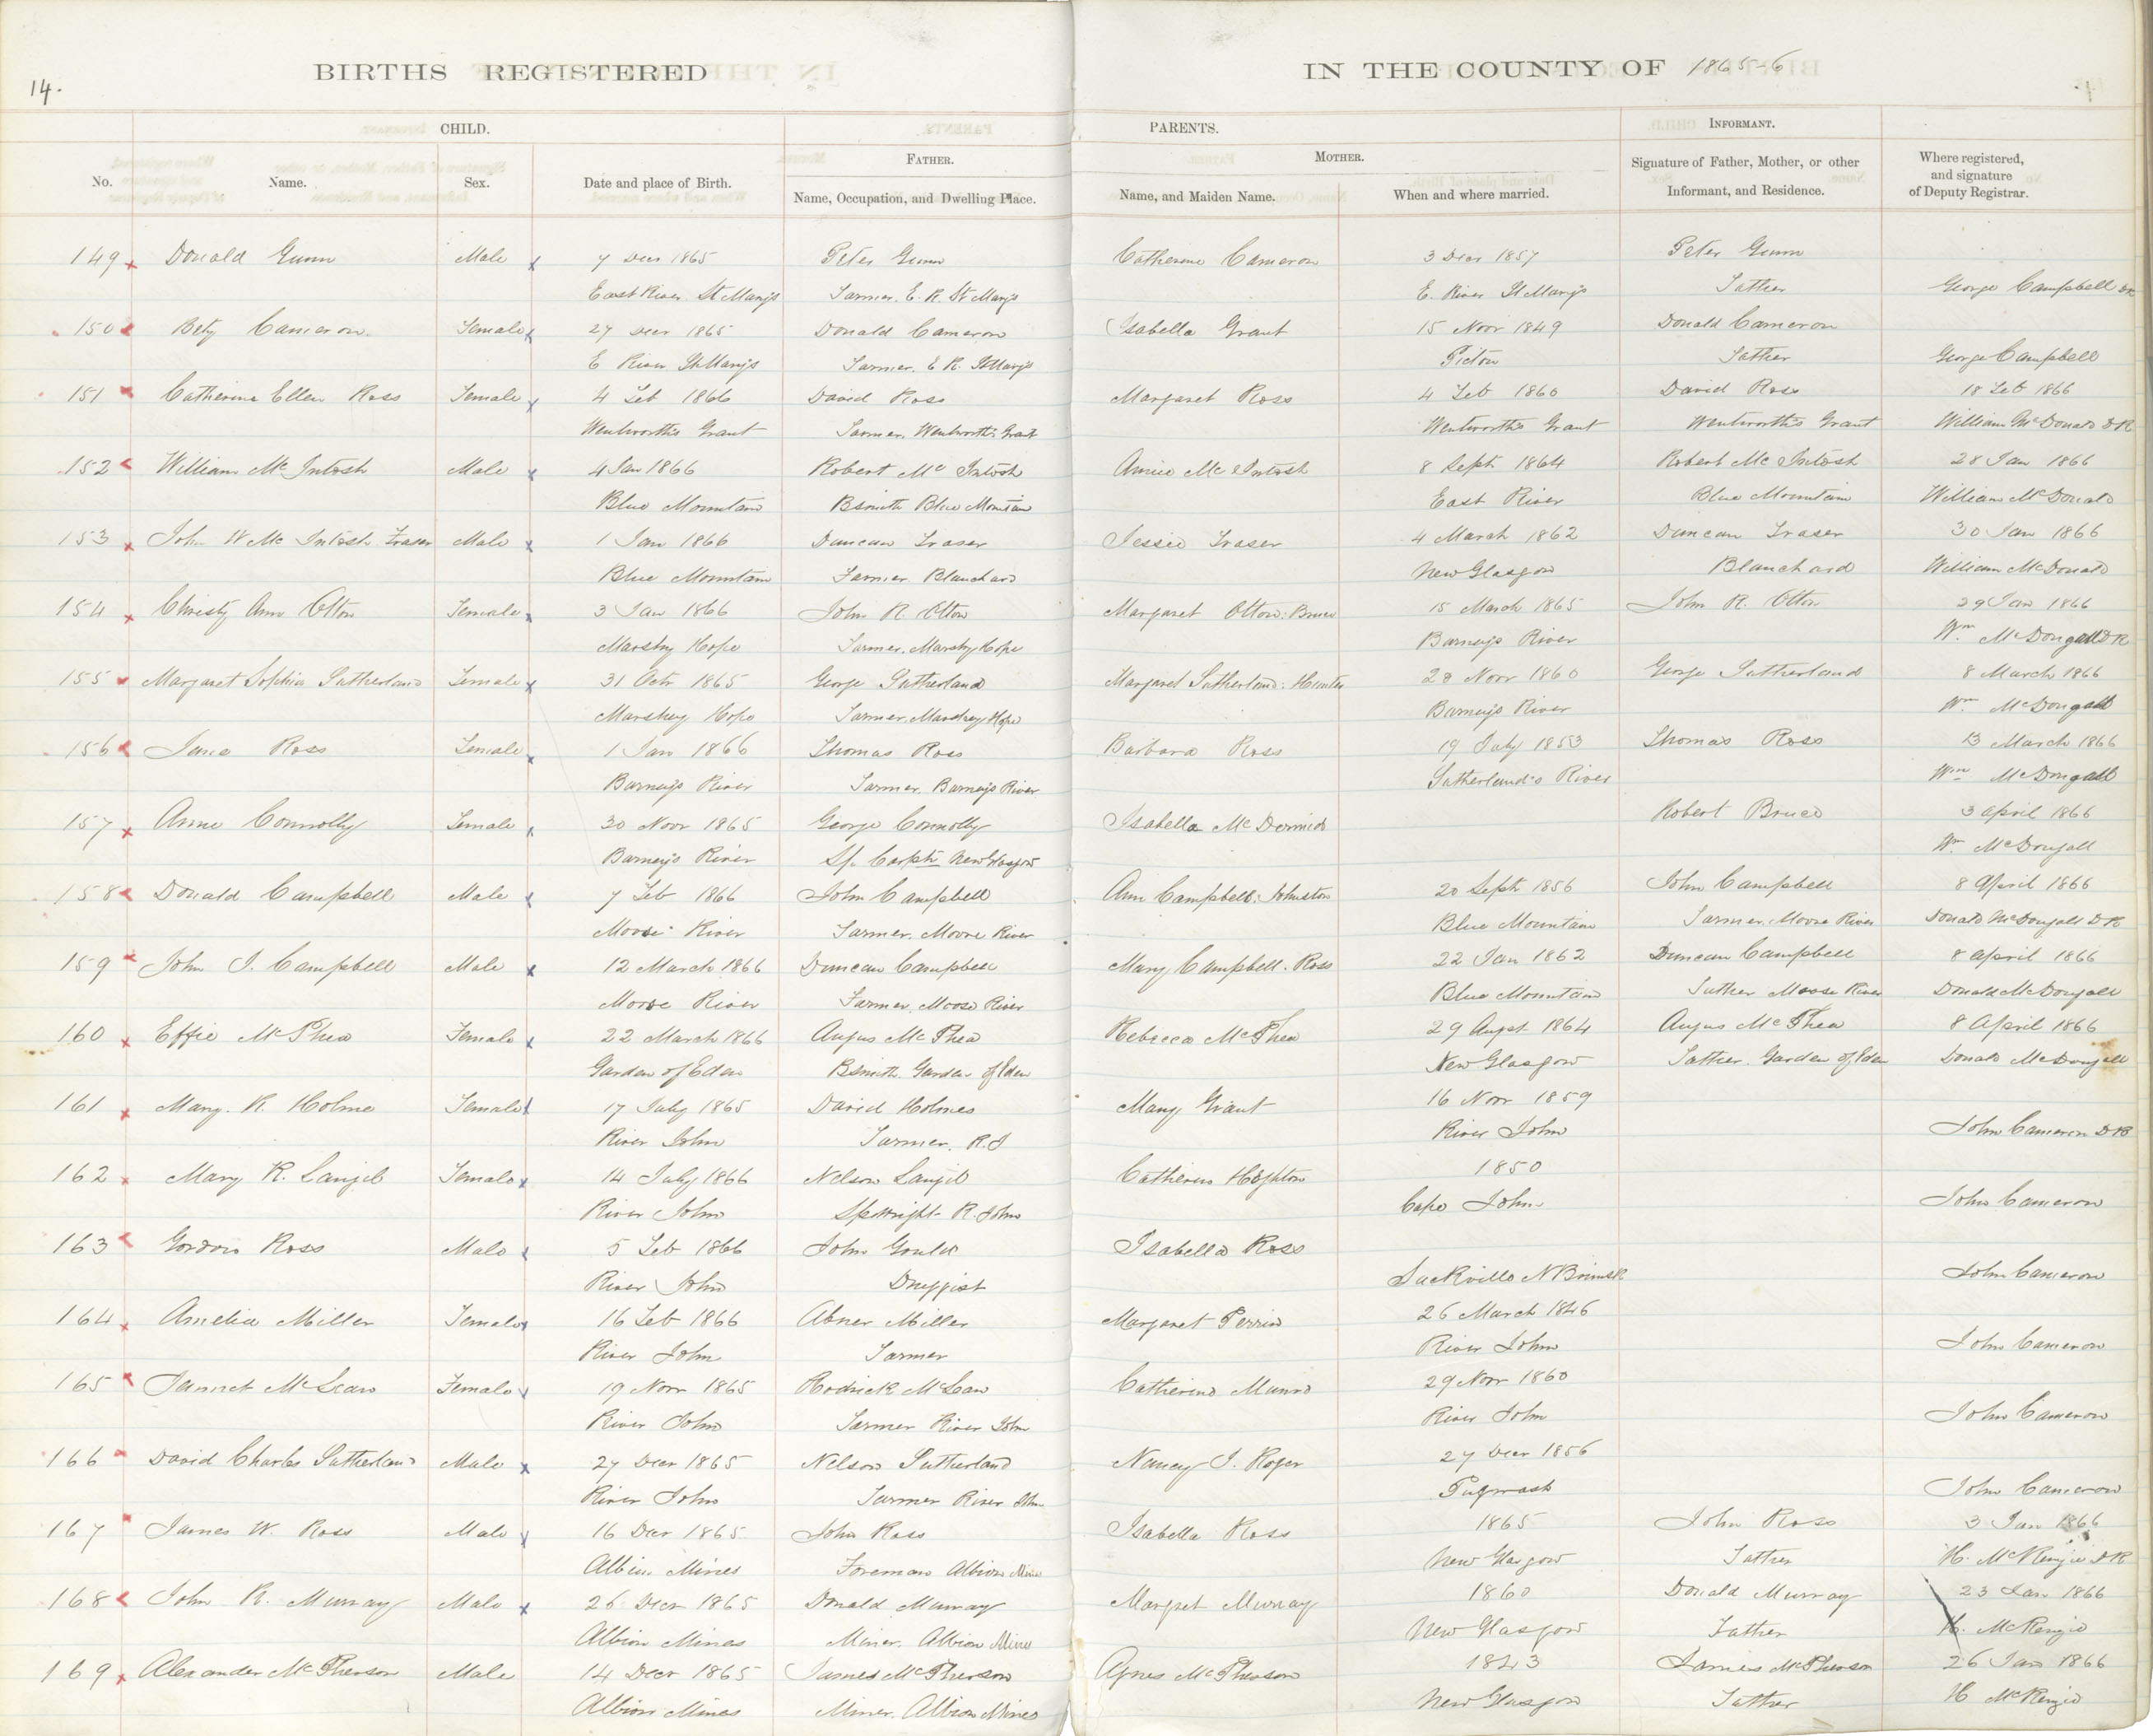 14.
BIRTHS REGISTERED IN THE COUNTY OF 1865-6
CHILD. PARENTS. INFORMANT.
FATHER. MOTHER.
No. Name. Sex. Date and place of Birth. Name, Occupation, and Dwelling Place. Name, and Maiden Name. When and where married. Signature of Father, Mother, or other Informant, and Residence. Where registered, and signature of Deputy Registrar.
149 Donald Gunn Male 7 Decr 1865 Peter Gunn Catherine Cameron 3 Decr 1857 Peter Gunn
East River St Mary's Farmer. E. R. St Mary's E. River St Mary's Father George Campbell DR
150 Bety Cameron. Female 27 Decr 1865 Donald Cameron Isabella Grant 15 Novr 1849 Donald Cameron
E River St Mary's Farmer. E R. St Mary's Pictou Father George Campbell
151 Catherine Ellen Ross Female 4 Feb 1866 David Ross Margaret Ross 4 Feb 1860 David Ross 18 Feb 1866
Wentworth's Grant Farmer. Wentworth's Grant Wentworth's Grant Wentworth's Grant William McDonald DR
152 William McIntosh Male 4 Jan 1866 Robert McIntosh Annie McIntosh 8 Septr 1864 Robert McIntosh 28 Jan 1866
Blue Mountain Bsmith Blue Mountain East River Blue Mountain William McDonald
153 John W McIntosh Fraser Male 1 Jan 1866 Duncan Fraser Jessie Fraser 4 March 1862 Duncan Fraser 30 Jan 1866
Blue Mountain Farmer. Blanchard New Glasgow Blanchard William McDonald
154 Christy Ann Otton Female 3 Jan 1866 John R. Otton Margaret Otton: Bruce 15 March 1865 John R. Otton 29 Jan 1866
Marshy Hope Farmer. Marshy Hope Barney's River Wm McDougall DR
155 Margaret Sophia Sutherland Female 31 Octr 1865 George Sutherland Margaret Sutherland: Hunter 28 Novr 1860 George Sutherland 8 March 1866
Marshey Hope Farmer. Marshey Hope Barney's River Wm McDougall
156 Jane Ross Female 1 Jan 1866 Thomas Ross Barbara Ross 19 July 1853 Thomas Ross 13 March 1866
Barney's River Farmer. Barney's River Sutherland's River Wm McDougall
157 Anne Connolly Female 30 Novr 1865 George Connolly Isabella McDermid Robert Bruce 3 April 1866
Barney's River Sp. Carptr New Glasgow Wm McDougall
158 Donald Campbell Male 7 Feb 1866 John Campbell Ann Campbell: Johnston 20 Septr 1856 John Campbell 8 April 1866
Moose River Farmer. Moose River Blue Mountain Farmer. Moose River Donald McDougall DR
159 John J. Campbell Male 12 March 1866 Duncan Campbell Mary Campbell. Ross 22 Jan 1862 Duncan Campbell 8 April 1866
Moose River Farmer. Moose River Blue Mountain Father Moose River Donald McDougall
160 Effie McPhea Female 22 March 1866 Angus McPhea Rebecca McPhea 29 Augst 1864 Angus McPhea 8 April 1866
Garden of Eden Bsmith. Garden of Eden New Glasgow Father. Garden of Eden Donald McDougall
161 Mary. R. Holme Female 17 July 1865 David Holmes Mary Grant 16 Novr 1859
River John Farmer. R. J River John John Cameron DR
162 Mary R. Langil Female 14 July 1866 Nelson Langil Catherine Highton 1850
River John SpWright R. John Cape John John Cameron
163 Gordon Ross Male 5 Feb 1866 John Gould Isabella Ross
River John Druggist Sackville N Brunsk John Cameron
164 Amelia Miller Female 16 Feb 1866 Abner Miller Margaret Perrin 26 March 1846
River John Farmer River John John Cameron
165 Jannet McLean Female 19 Novr 1865 Rodrick McLean Catherine Munro 29 Novr 1860
River John Farmer River John River John John Cameron
166 David Charles Sutherland Male 27 Decr 1865 Nelson Sutherland Nancy J. Roger 27 Decr 1856
River John Farmer River John Pugwash John Cameron
167 James W. Ross Male 16 Decr 1865 John Ross Isabella Ross 1865 John Ross 3 Jan 1866
Albion Mines Foreman Albion Mines New Glasgow Father H. McKenzie DR
168 John R. Murray Male 26 Decr 1865 Donald Murray Margret Murray 1860 Donald Murray 23 Jan 1866
Albion Mines Miner. Albion Mines New Glasgow Father H. McKenzie
169 Alexander McPherson Male 14 Decr 1865 James McPherson Agnes McPherson 1843 James McPherson 26 Jan 1866
Albion Mines Miner. Albion Mines New Glasgow Father H McKenzie